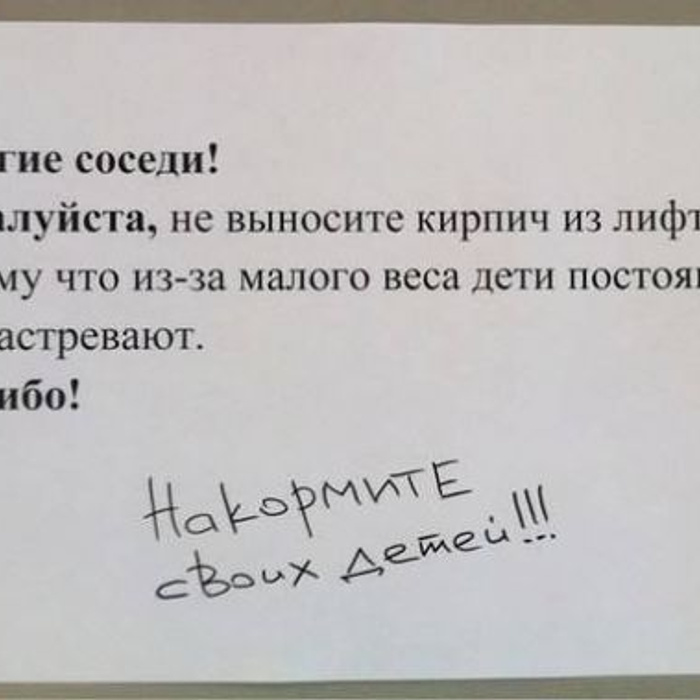 гие соседи!
алуйста, не выносите кирпич из лифт
му что из-за малого веса дети постоя
астревают.
ибо!
НакормитЕ
своих детей!!!